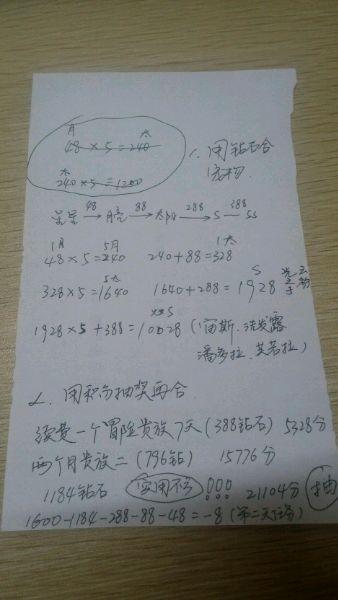 月 太
48×5=240
太
240×5=1200
1、用钻石合
宠物
星星 48→ 月亮 88→ 太阳 288→ S 388→ SS
1月 5月 1太
48×5=240 240+88=328
5太 S
328×5=1640 1640+288=1928
SS
1928×5+388=10028(宙斯、法老露
潘多拉、艾若拉)
2、用积分抽奖再合
续费一个冒险贵族7天(388钻石) 5328分
两个月贵族二(796钻) 15776分
1184钻石 实用不亏!!! 21104分 抽
1600-1184-288-88-48=-8(第二天任务)